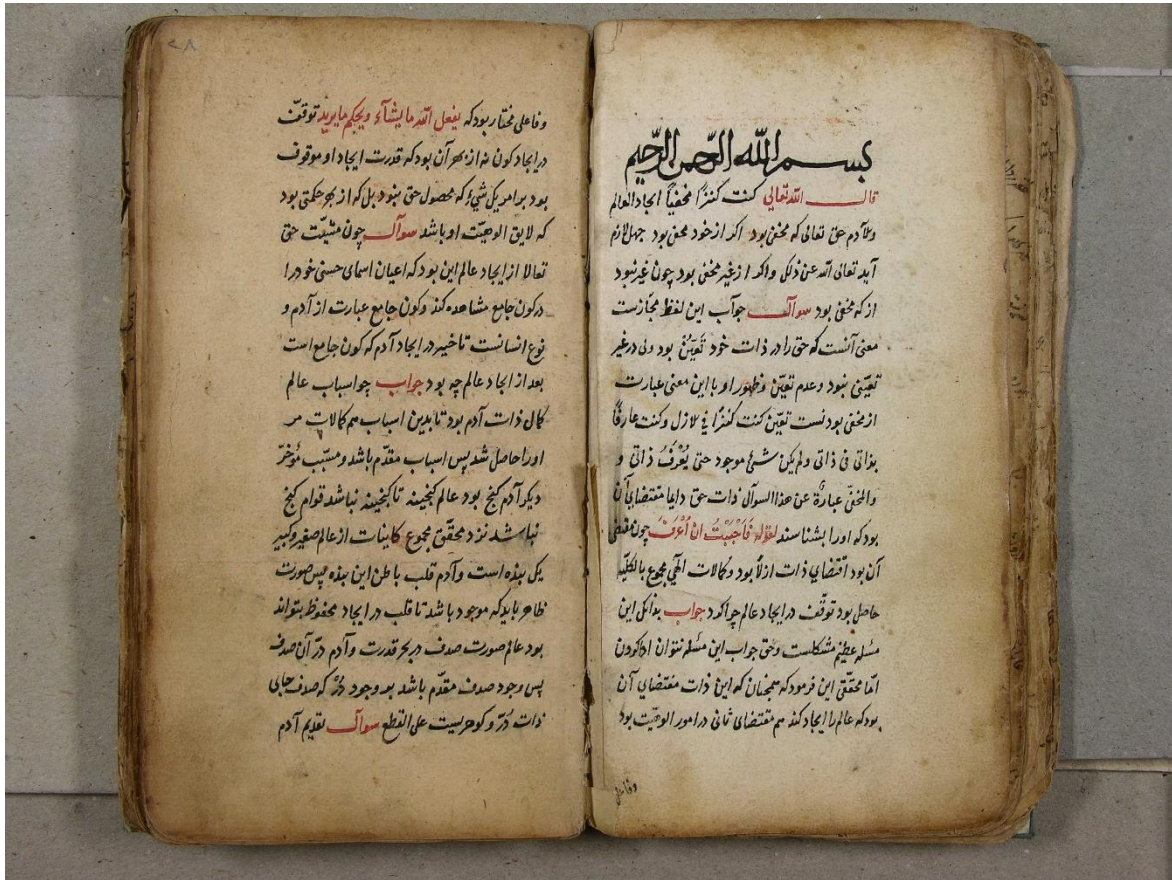 بسم الله الرحمن الرحيم
قال الله تعالى كنت كنزًا مخفيًا ايجاد العالم
وملآدم حق تعالى كه مخفى بود اكر از خود مخفى بود جهل لازم
آيد تعالى الله عن ذلك واكر از غير مخفى بود چون غير نبود
از كه مخفى بود سوآل جوآب اين لفظ مجازست
معنى آنست كه حق را در ذات خود تعيّن بود ولى در غير
تعيّنى نبود وعدم تعيّن وظهور او با اين معنى عبارت
از مخفى بود نست تعيّن كنت كنزًا فى لازل وكنت عارفًا
بذاتى فى ذاتى ولم يكن شئ موجود حتى يُعْرَفَ ذاتى و
والمخفىّ عبارةٌ عن هذا السوآل ذات حق دايما مقتضاى آن
بود كه اورا بشناسند لقوله فَاَحْبَبْتُ ان اُعْرَفَ چون مقتضى
آن بود اقتضاى ذات ازلًا بود وكمالات الهى مجموع بالكليّه
حاصل بود توقّف در ايجاد عالم چرا كرد جواب بدانكه اين
مسئله عظيم مشكلست وحق جواب اين مسئله نتوان ادا كردن
امّا محقّقى اين فرمود كه همچنان كه اين ذات مقتضاى آن
بود كه عالم را ايجاد كند هم مقتضاى ثانى در امور الوهيّت بود
وفاعلى
٢٨
وفاعلى مختار بود كه يفعل الله ما يشآء ويحكم ما يريد توقّف
در ايجاد كون نه از بهر آن بود كه قدرت ايجاد او موقوف
بود بر امر يك شىء كه محصول حق بنود بل كه از بهر حكمتى بود
كه لايق الوهيّت او باشد سوآل چون مشيّت حق
تعالا از ايجاد عالم اين بود كه اعيان اسماى حسنى خود را
در كون جامع مشاهده كند وكون جامع عبارت از آدم و
نوع انسانست تاخير در ايجاد آدم كه كون جامع است
بعد از ايجاد عالم چه بود جواب چو اسباب عالم
كمال ذات آدم بود تا بدين اسباب هم كمالات مر
اورا حاصل شد پس اسباب مقدّم باشد ومسبّب مؤخّر
ديكر آدم كنج بود عالم كنجينه تا كنجينه نباشد قوام كنج
نباشد نزد محقّق مجموع كاينات از عالم صغير وكبير
يك بنده است وآدم قلب باطن اين بنده پس صورت
ظاهر بايد كه موجود باشد تا قلب در ايجاد محفوظ بتواند
بود عالم صورت صدف در بحر قدرت وآدم درّ آن صدف
پس وجود صدف مقدّم باشد بر وجود دُرّ كه صدف جاى
ذات دُرّ وكوهريست على القطع سوآل تقديم آدم